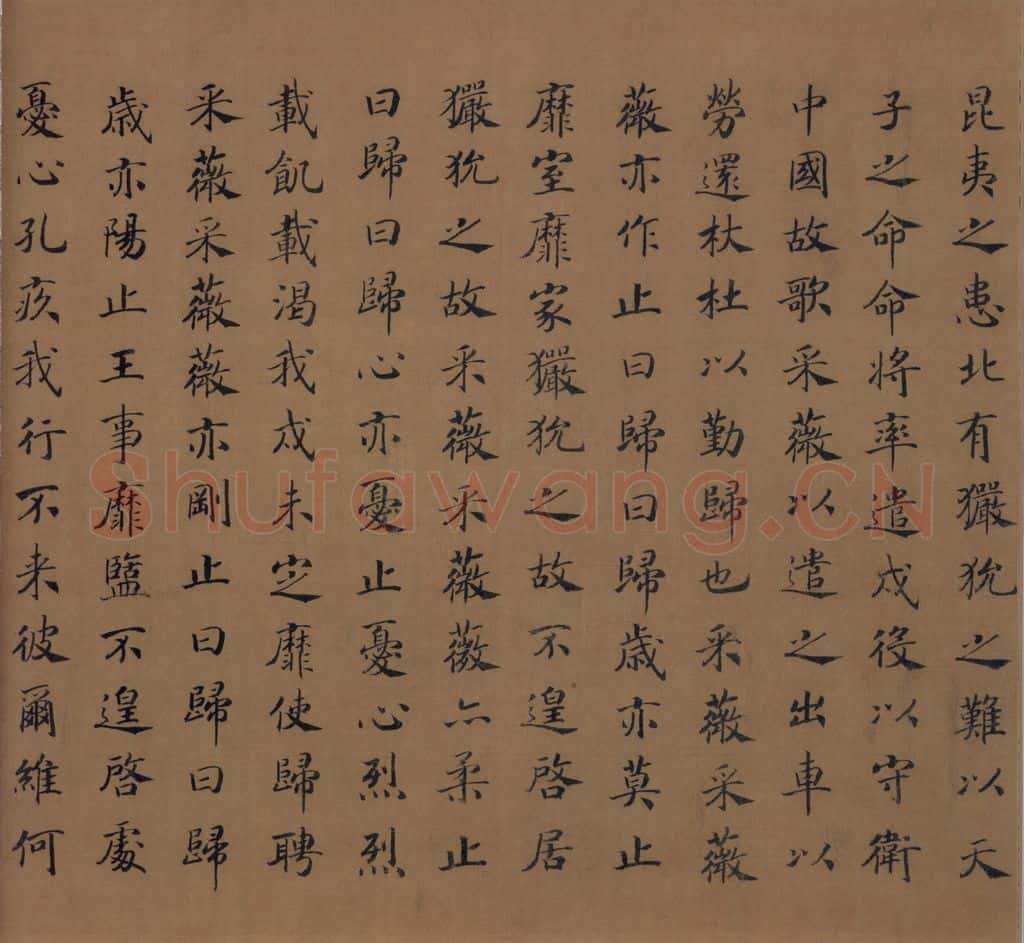 昆夷之患北有玁狁之難以天
子之命命將率遣戍役以守衛
中國故歌采薇以遣之出車以
勞還杕杜以勤歸也采薇采薇
薇亦作止曰歸曰歸歲亦莫止
靡室靡家玁狁之故不遑啓居
玁狁之故采薇采薇薇亦柔止
曰歸曰歸心亦憂止憂心烈烈
載飢載渴我戍未定靡使歸聘
采薇采薇薇亦剛止曰歸曰歸
歲亦陽止王事靡盬不遑啓處
憂心孔疚我行不来彼爾維何
Shufawang.CN